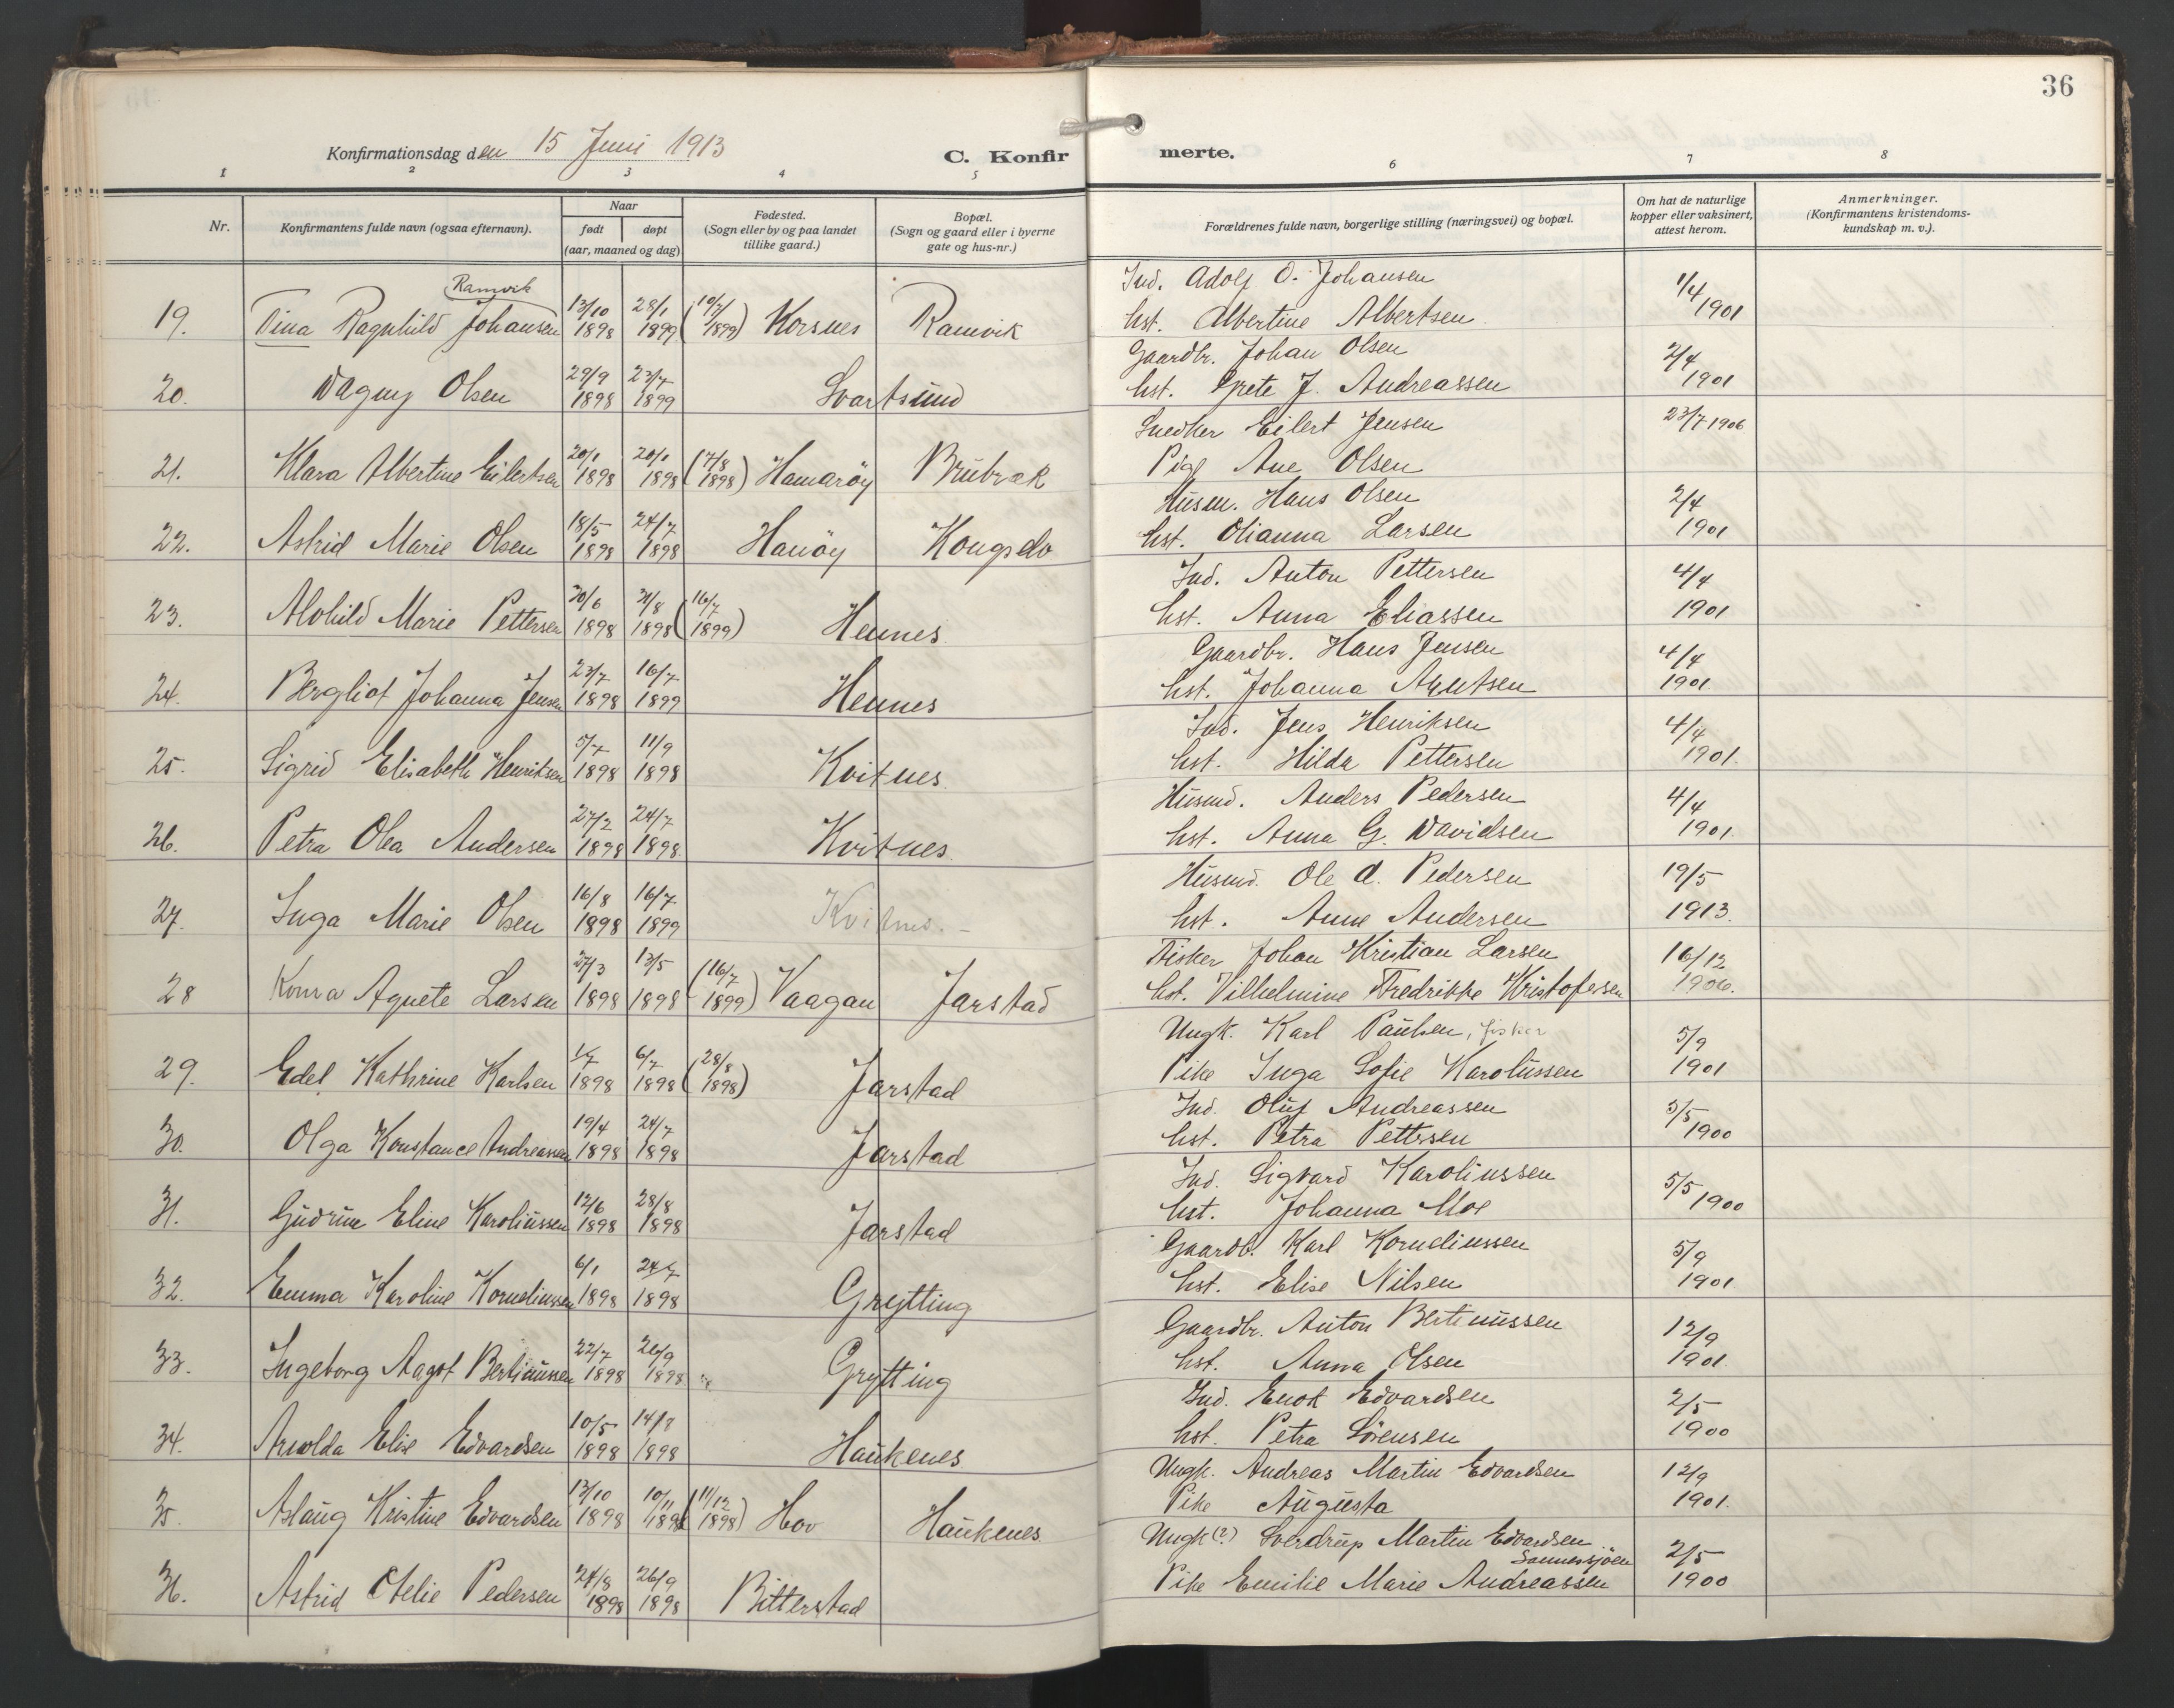 36
Konfirmationsdag den 15 Juni 1913
C. Konfirmerte.
1 2 3 4 5 6 7 8
Nr. Konfirmantens fulde navn (ogsaa efternavn). Naar født døpt (aar, maaned og dag) Fødested. (Sogn eller by og paa landet tillike gaard.) Bopæl. (Sogn og gaard eller i byerne gate og hus-nr.) Forældrenes fulde navn, borgerlige stilling (næringsvei) og bopæl. Om hat de naturlige kopper eller vaksinert, attest herom. Anmerkninger. (Konfirmantens kristendoms-kundskap m. v.).
Ramvik
19. Tina Ragnhild Johansen 13/10 1898 28/1 1899 (10/7 1899) Korsnes Ramvik Ind. Adolf O. Johansen 1/4 1901
hst. Albertine Albertsen
20. Dagny Olsen 29/9 1898 23/7 1899 Svartsund Gaardbr. Johan Olsen 2/4 1901
hst. Grete J. Andreassen
21. Klara Albertine Eilertsen 20/1 1898 20/1 1898 (17/8 1898) Hamaröy Brubræk Snedker Eilert Jensen 23/7 1906
Pige Ane Olsen
22. Astrid Marie Olsen 18/5 1898 24/7 1898 Hanöy Kongselv Husm. Hans Olsen 2/4 1901
hst. Olianna Larsen
23. Alvhild Marie Pettersen 30/6 1898 21/8 1898 (16/7 1899) Hennes Ind. Anton Pettersen 4/4 1901
hst. Anna Eliassen
24. Bergliot Johanna Jensen 23/7 1898 16/7 1899 Hennes Gaardbr. Hans Jensen 4/4 1901
hst. Johanna Arntsen
25. Sigrid Elisabeth Henriksen 5/7 1898 11/9 1898 Kvitnes Ind. Jens Henriksen 4/4 1901.
hst. Hilda Pettersen
26. Petra Olea Andersen 27/2 1898 24/7 1898 Kvitnes Husmd. Anders Pedersen 4/4 1901.
hst. Anna G. Davidsen
27. Inga Marie Olsen 16/8 1898 16/7 1899 Kvitnes. Husmd. Ole A. Pedersen 19/5 1913.
hst. Anne Andersen
28 Konra Agnete Larsen 27/3 1898 13/5 1898 (16/7 1899) Vaagan Jarstad Fisker Johan Kristian Larsen 16/12 1906.
hst. Vilhelmine Fredrikke Kristofersen
29. Edel Kathrine Karlsen 1/7 1898 6/7 1898 (28/8 1898) Jarstad Ungk. Karl Paulsen, fisker 5/9 1901
Pike Inga Sofie Karolussen
30. Olga Konstance Andreassen 19/4 1898 24/7 1898 Jarstad Ind. Oluf Andreassen 5/5 1900
hst. Petra Pettersen
31. Gudrun Eline Karoliussen 12/6 1898 28/8 1898 Jarstad Ind. Sigvard Karoliussen 5/5 1900
hst. Johanna Moe
32. Emma Karoline Korneliussen 6/1 1898 24/7 1898 Grytting Gaardb. Karl Korneliussen 5/9 1901
hst. Elise Nilsen
33. Ingeborg Aagot Bertinussen 22/7 1898 26/9 1898 Grytting Gaardbr. Anton Bertinussen 12/9 1901
hst. Anna Olsen
34. Arnolda Elise Edvardsen 10/5 1898 14/8 1898 Haukenes Ind. Enok Edvardsen 2/5 1900
hst. Petra Sörensen
35. Aslaug Kristine Edvardsen 13/10 1898 10/11 1898 (11/12 1898) Hov Haukenes Ungk. Andreas Martin Edvardsen 12/9 1901.
Pike Augusta
36. Astrid Otelie Pedersen 24/8 1898 26/9 1898 Bitterstad Ungk(?) Sverdrup Martin Edvardsen Sannessjöen 2/5 1900
Pike Emilie Marie Andreassen